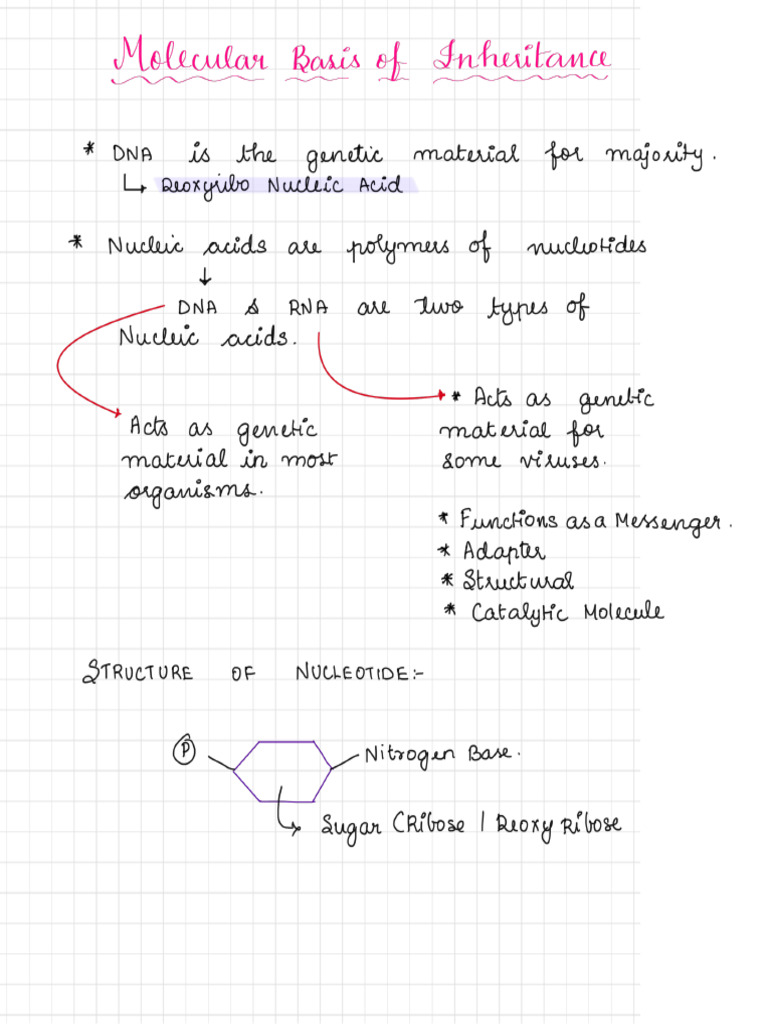 Molecular Basis of Inheritance
* DNA is the genetic material for majority.
↳ Deoxyribo Nucleic Acid
* Nucleic acids are polymers of nucleotides
↓
DNA & RNA are two types of
Nucleic acids.
Acts as genetic
material in most
organisms.
* Acts as genetic
material for
some viruses.
* Functions as a Messenger.
* Adapter
* Structural
* Catalytic Molecule
STRUCTURE OF NUCLEOTIDE:-
P
Nitrogen Base.
Sugar (Ribose / Deoxy Ribose